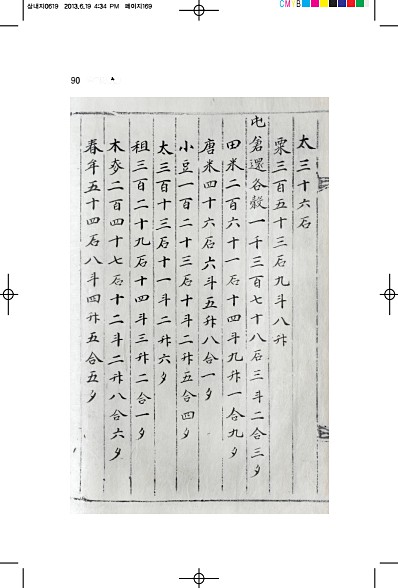 심내지0619 2013.6.19 4:34 PM 페이지169
CMYB
90
太三十六石
粟三百五十三石九斗八升
屯倉還各穀一千三百七十八石三斗二合三夕
田米二百六十一石十四斗九升一合九夕
唐米四十六石六斗五升八合一夕
小豆一百二十三石十斗二升五合四夕
太三百十三石十一斗二升六夕
租三百二十九石十四斗三升二合一夕
木麥二百四十七石十二斗二升八合六夕
春牟五十四石八斗四升五合五夕